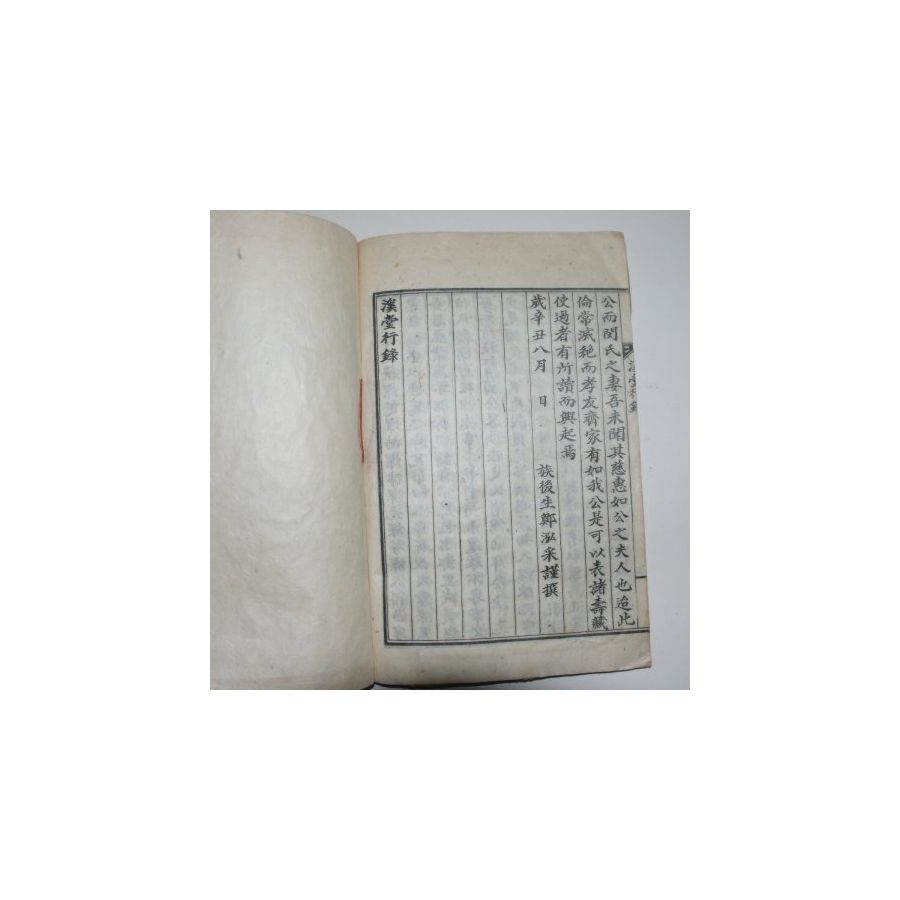 溪堂行錄
公而閔氏之妻吾未聞其慈惠如公之夫人也迨此
倫常滅絶而孝友齊家有如我公是可以表諸壽藏
使過者有所讀而興起焉
歲辛丑八月 日
族後生鄭泓采謹撰
溪堂行錄